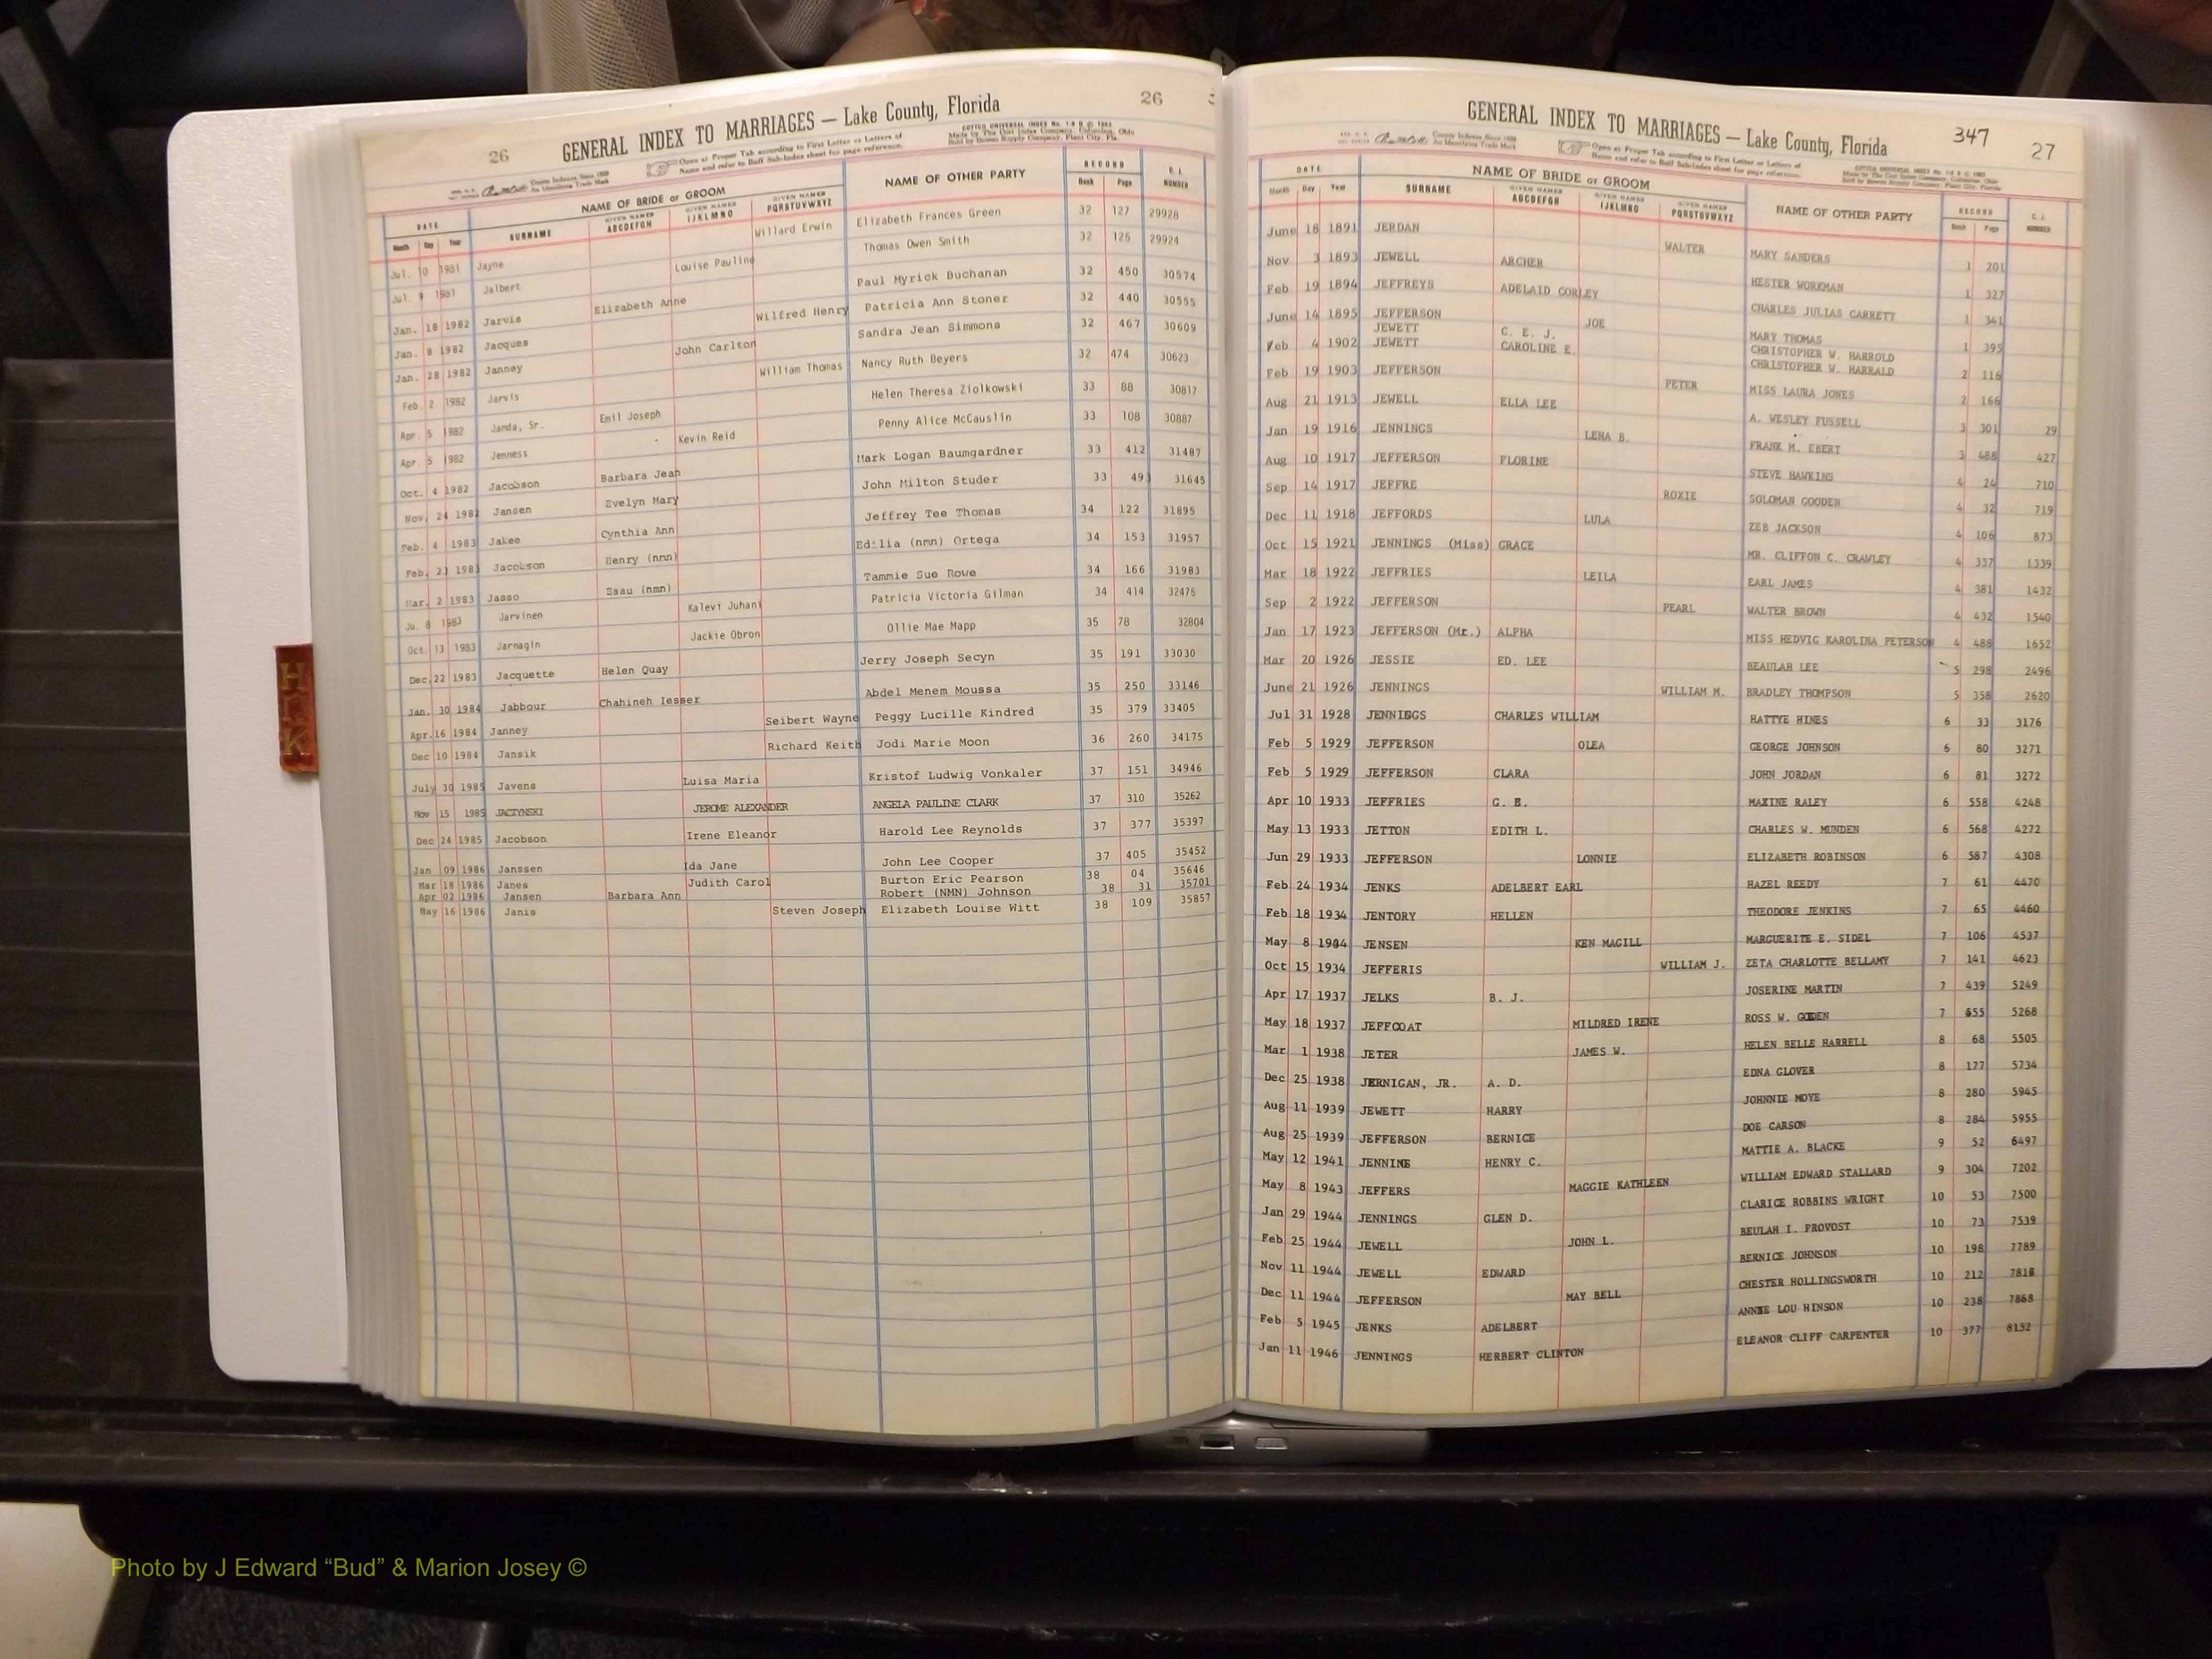 26 GENERAL INDEX TO MARRIAGES — Lake County, Florida 26
Open at Proper Tab according to First Letter or Letters of
Name and refer to Buff Sub-Index sheet for page reference.
COTTCO UNIVERSAL INDEX
Made by The Cott Index Company, Columbus, Ohio
Sold by Bowen Supply Company, Plant City, Fla.
County Indexes Since 1888
An Identifying Trade Mark
DATE NAME OF BRIDE or GROOM NAME OF OTHER PARTY RECORD C. I. NUMBER
Month Day Year SURNAME GIVEN NAMES ABCDEFGH GIVEN NAMES IJKLMNO GIVEN NAMES PQRSTUVWXYZ Book Page
Jul. 10 1981 Jayne Willard Erwin Elizabeth Frances Green 32 127 29928
Jul. 9 1981 Jalbert Louise Pauline Thomas Owen Smith 32 125 29924
Jan. 18 1982 Jarvis Elizabeth Anne Paul Myrick Buchanan 32 450 30574
Jan. 8 1982 Jacques Wilfred Henry Patricia Ann Stoner 32 440 30555
Jan. 28 1982 Janney John Carlton Sandra Jean Simmons 32 467 30609
Feb. 2 1982 Jarvis William Thomas Nancy Ruth Beyers 32 474 30623
Apr. 5 1982 Janda, Sr. Emil Joseph Helen Theresa Ziolkowski 33 88 30817
Apr. 5 1982 Jenness Kevin Reid Penny Alice McCauslin 33 108 30887
Oct. 4 1982 Jacobson Barbara Jean Mark Logan Baumgardner 33 412 31487
Nov. 24 1982 Jansen Evelyn Mary John Milton Studer 33 493 31645
Feb. 4 1983 Jakeo Cynthia Ann Jeffrey Tee Thomas 34 122 31895
Feb. 23 1983 Jacobson Henry (nmn) Edilia (nmn) Ortega 34 153 31957
Mar. 2 1983 Jasso Esau (nmn) Tammie Sue Rowe 34 166 31983
Ju. 8 1983 Jarvinen Kalevi Juhani Patricia Victoria Gilman 34 414 32475
Oct. 13 1983 Jarnagin Jackie Obron Ollie Mae Mapp 35 78 32804
Dec. 22 1983 Jacquette Helen Quay Jerry Joseph Secyn 35 191 33030
Jan. 10 1984 Jabbour Chahineh Iesser Abdel Menem Moussa 35 250 33146
Apr. 16 1984 Janney Seibert Wayne Peggy Lucille Kindred 35 379 33405
Dec 10 1984 Jansik Richard Keith Jodi Marie Moon 36 260 34175
July 30 1985 Javens Luisa Maria Kristof Ludwig Vonkaler 37 151 34946
Nov 15 1985 JACZYNSKI JEROME ALEXANDER ANGELA PAULINE CLARK 37 310 35262
Dec 24 1985 Jacobson Irene Eleanor Harold Lee Reynolds 37 377 35397
Jan 09 1986 Janssen Ida Jane John Lee Cooper 37 405 35452
Mar 18 1986 Janes Judith Carol Burton Eric Pearson 38 04 35646
Apr 02 1986 Jansen Barbara Ann Robert (NMN) Johnson 38 31 35701
May 16 1986 Janis Steven Joseph Elizabeth Louise Witt 38 109 35857
H
I-J
K
GENERAL INDEX TO MARRIAGES — Lake County, Florida 347 27
County Indexes Since 1888
An Identifying Trade Mark
Open at Proper Tab according to First Letter or Letters of
Name and refer to Buff Sub-Index sheet for page reference.
DATE NAME OF BRIDE or GROOM NAME OF OTHER PARTY RECORD C. I. NUMBER
Month Day Year SURNAME GIVEN NAMES ABCDEFGH GIVEN NAMES IJKLMNO GIVEN NAMES PQRSTUVWXYZ Book Page
June 18 1891 JERDAN WALTER MARY SANDERS 1 201
Nov 3 1893 JEWELL ARCHER HESTER WORKMAN 1 327
Feb 19 1894 JEFFREYS ADELAID CORLEY CHARLES JULIAS GARRETT 1 341
June 14 1895 JEFFERSON JOE MARY THOMAS 1 395
JEWETT C. E. J. CHRISTOPHER W. HARROLD
Feb 4 1902 JEWETT CAROLINE E. CHRISTOPHER W. HARRALD 2 116
Feb 19 1903 JEFFERSON PETER MISS LAURA JONES 2 166
Aug 21 1913 JEWELL ELLA LEE A. WESLEY FUSSELL 3 301 29
Jan 19 1916 JENNINGS LENA B. FRANK M. EBERT 3 488 427
Aug 10 1917 JEFFERSON FLORINE STEVE HAWKINS 4 24 710
Sep 14 1917 JEFFRE ROXIE SOLOMAN GOODEN 4 32 719
Dec 11 1918 JEFFORDS LULA ZEB JACKSON 4 106 873
Oct 15 1921 JENNINGS (Miss) GRACE MR. CLIFFON C. CRAWLEY 4 337 1339
Mar 18 1922 JEFFRIES LEILA EARL JAMES 4 381 1432
Sep 2 1922 JEFFERSON PEARL WALTER BROWN 4 432 1540
Jan 17 1923 JEFFERSON (Mr.) ALPHA MISS HEDVIG KAROLINA PETERSON 4 488 1652
Mar 20 1926 JESSIE ED. LEE BEAULAH LEE 5 298 2496
June 21 1926 JENNINGS WILLIAM M. BRADLEY THOMPSON 5 358 2620
Jul 31 1928 JENNINGS CHARLES WILLIAM HATTYE HINES 6 33 3176
Feb 5 1929 JEFFERSON OLEA GEORGE JOHNSON 6 80 3271
Feb 5 1929 JEFFERSON CLARA JOHN JORDAN 6 81 3272
Apr 10 1933 JEFFRIES G. B. MAXINE RALEY 6 558 4248
May 13 1933 JETTON EDITH L. CHARLES W. MUNDEN 6 568 4272
Jun 29 1933 JEFFERSON LONNIE ELIZABETH ROBINSON 6 587 4308
Feb 24 1934 JENKS ADELBERT EARL HAZEL REEDY 7 61 4470
Feb 18 1934 JENTORY HELLEN THEODORE JENKINS 7 65 4460
May 8 1934 JENSEN KEN MAGILL MARGUERITE E. SIDEL 7 106 4537
Oct 15 1934 JEFFERIS WILLIAM J. ZETA CHARLOTTE BELLAMY 7 141 4623
Apr 17 1937 JELKS B. J. JOSERINE MARTIN 7 439 5249
May 18 1937 JEFFCOAT MILDRED IRENE ROSS W. GODEN 7 455 5268
Mar 1 1938 JETER JAMES W. HELEN BELLE HARRELL 8 68 5505
Dec 25 1938 JERNIGAN, JR. A. D. EDNA GLOVER 8 177 5734
Aug 11 1939 JEWETT HARRY JOHNNIE MOYE 8 280 5945
Aug 25 1939 JEFFERSON BERNICE DOE CARSON 8 284 5955
May 12 1941 JENNING HENRY C. MATTIE A. BLACKE 9 52 6497
May 8 1943 JEFFERS MAGGIE KATHLEEN WILLIAM EDWARD STALLARD 9 304 7202
Jan 29 1944 JENNINGS GLEN D. CLARICE ROBBINS WRIGHT 10 53 7500
Feb 25 1944 JEWELL JOHN L. BEULAH I. PROVOST 10 73 7539
Nov 11 1944 JEWELL EDWARD BERNICE JOHNSON 10 198 7789
Dec 11 1944 JEFFERSON MAY BELL CHESTER HOLLINGSWORTH 10 212 7816
Feb 5 1945 JENKS ADELBERT ANNIE LOU HINSON 10 238 7868
Jan 11 1946 JENNINGS HERBERT CLINTON ELEANOR CLIFF CARPENTER 10 377 8152
Photo by J Edward “Bud” & Marion Josey ©